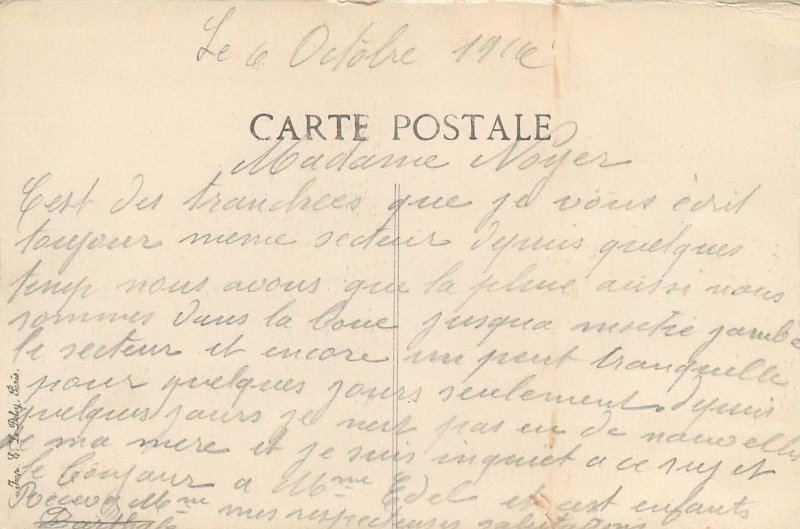 Le 6 Octobre 1916
CARTE POSTALE
Madame Noyer
C'est des trandrees que je vous écrit
toujour meme secteur depuis quelques
temp nous avons que la pluie aussi nous
sommes dans la boue jusqua moitié jambe
le secteur et encore un peut tranquille
pour quelques jours seulement. depuis
quelques jours je nert pas eu de nouvelles
de ma mere et je suis inquiet a ce sujet
le bonjour a Mme Edel et cest enfants
Recevez Mme mes respectueuses salutations
Imp. E. Le Deley, Paris.